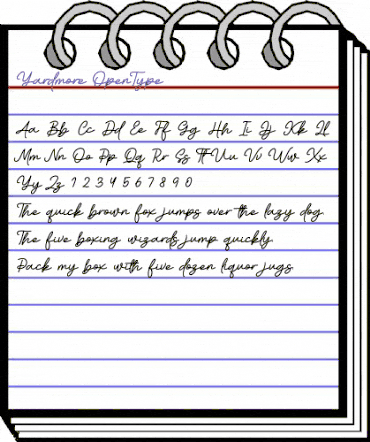 Yardmore OpenType
Aa Bb Cc Dd Ee Ff Gg Hh Ii Jj Kk Ll
Mm Nn Oo Pp Qq Rr Ss Tt Uu Vv Ww Xx
Yy Zz 1 2 3 4 5 6 7 8 9 0
The quick brown fox jumps over the lazy dog.
The five boxing wizards jump quickly.
Pack my box with five dozen liquor jugs.